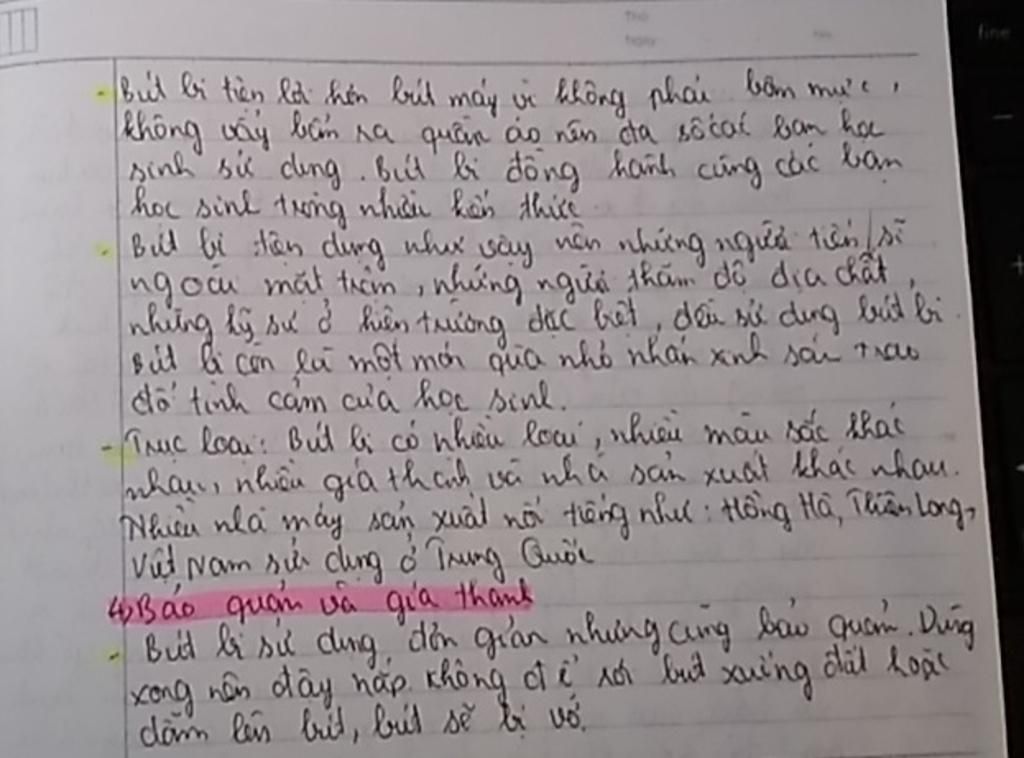 Thứ
Ngày
No.
fine
- Bút bi tiện lợi hơn bút máy vì không phải bơm mực,
không vấy bẩn ra quần áo nên đa số các bạn học
sinh sử dụng. Bút bi đồng hành cùng các bạn
học sinh trong nhiều kiến thức.
- Bút bi tiện dụng như vậy nên những người tiến sĩ
ngoài mặt trăm, những người thăm dò địa chất,
những kỹ sư ở hiện trường đặc biệt, đều sử dụng bút bi.
Bút bi còn là một món quà nhỏ nhắn xinh sắn trao
đổ tình cảm của học sinh.
- Trục loại: Bút bi có nhiều loại, nhiều màu sắc khác
nhau, nhiều giá thành và nhà sản xuất khác nhau.
Nhiều nhà máy sản xuất nổi tiếng như: Hồng Hà, Thiên Long,
Việt Nam sử dụng ở Trung Quốc
4) Bảo quản và giá thành
- Bút bi sử dụng đơn giản nhưng cũng bảo quản. Dùng
xong nên đậy nắp. Không để rơi bút xuống đất hoặc
dẫm lên bút, bút sẽ bị vỡ.